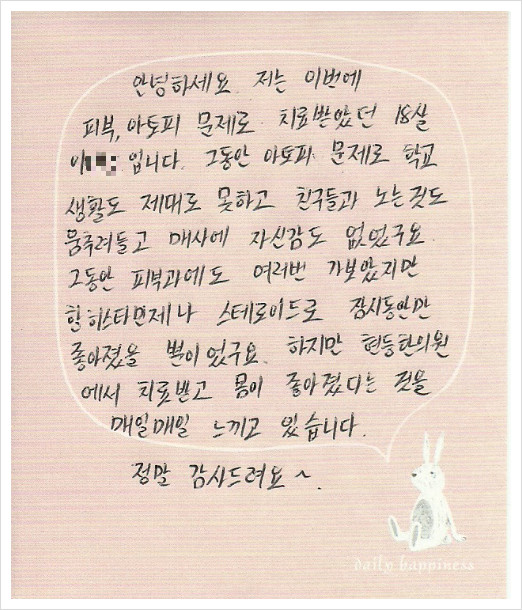 안녕하세요. 저는 이번에
피부, 아토피 문제로 치료받았던 18살
이 입니다. 그동안 아토피 문제로 학교
생활도 제대로 못하고 친구들과 노는것도
움추려들고 매사에 자신감도 없었구요.
그동안 피부과에도 여러번 가보았지만
항히스타민제나 스테로이드로 잠시동안만
좋아졌을 뿐이었구요. 하지만 현동한의원
에서 치료받고 몸이 좋아졌다는 것을
매일매일 느끼고 있습니다.
정말 감사드려요~.
daily happiness